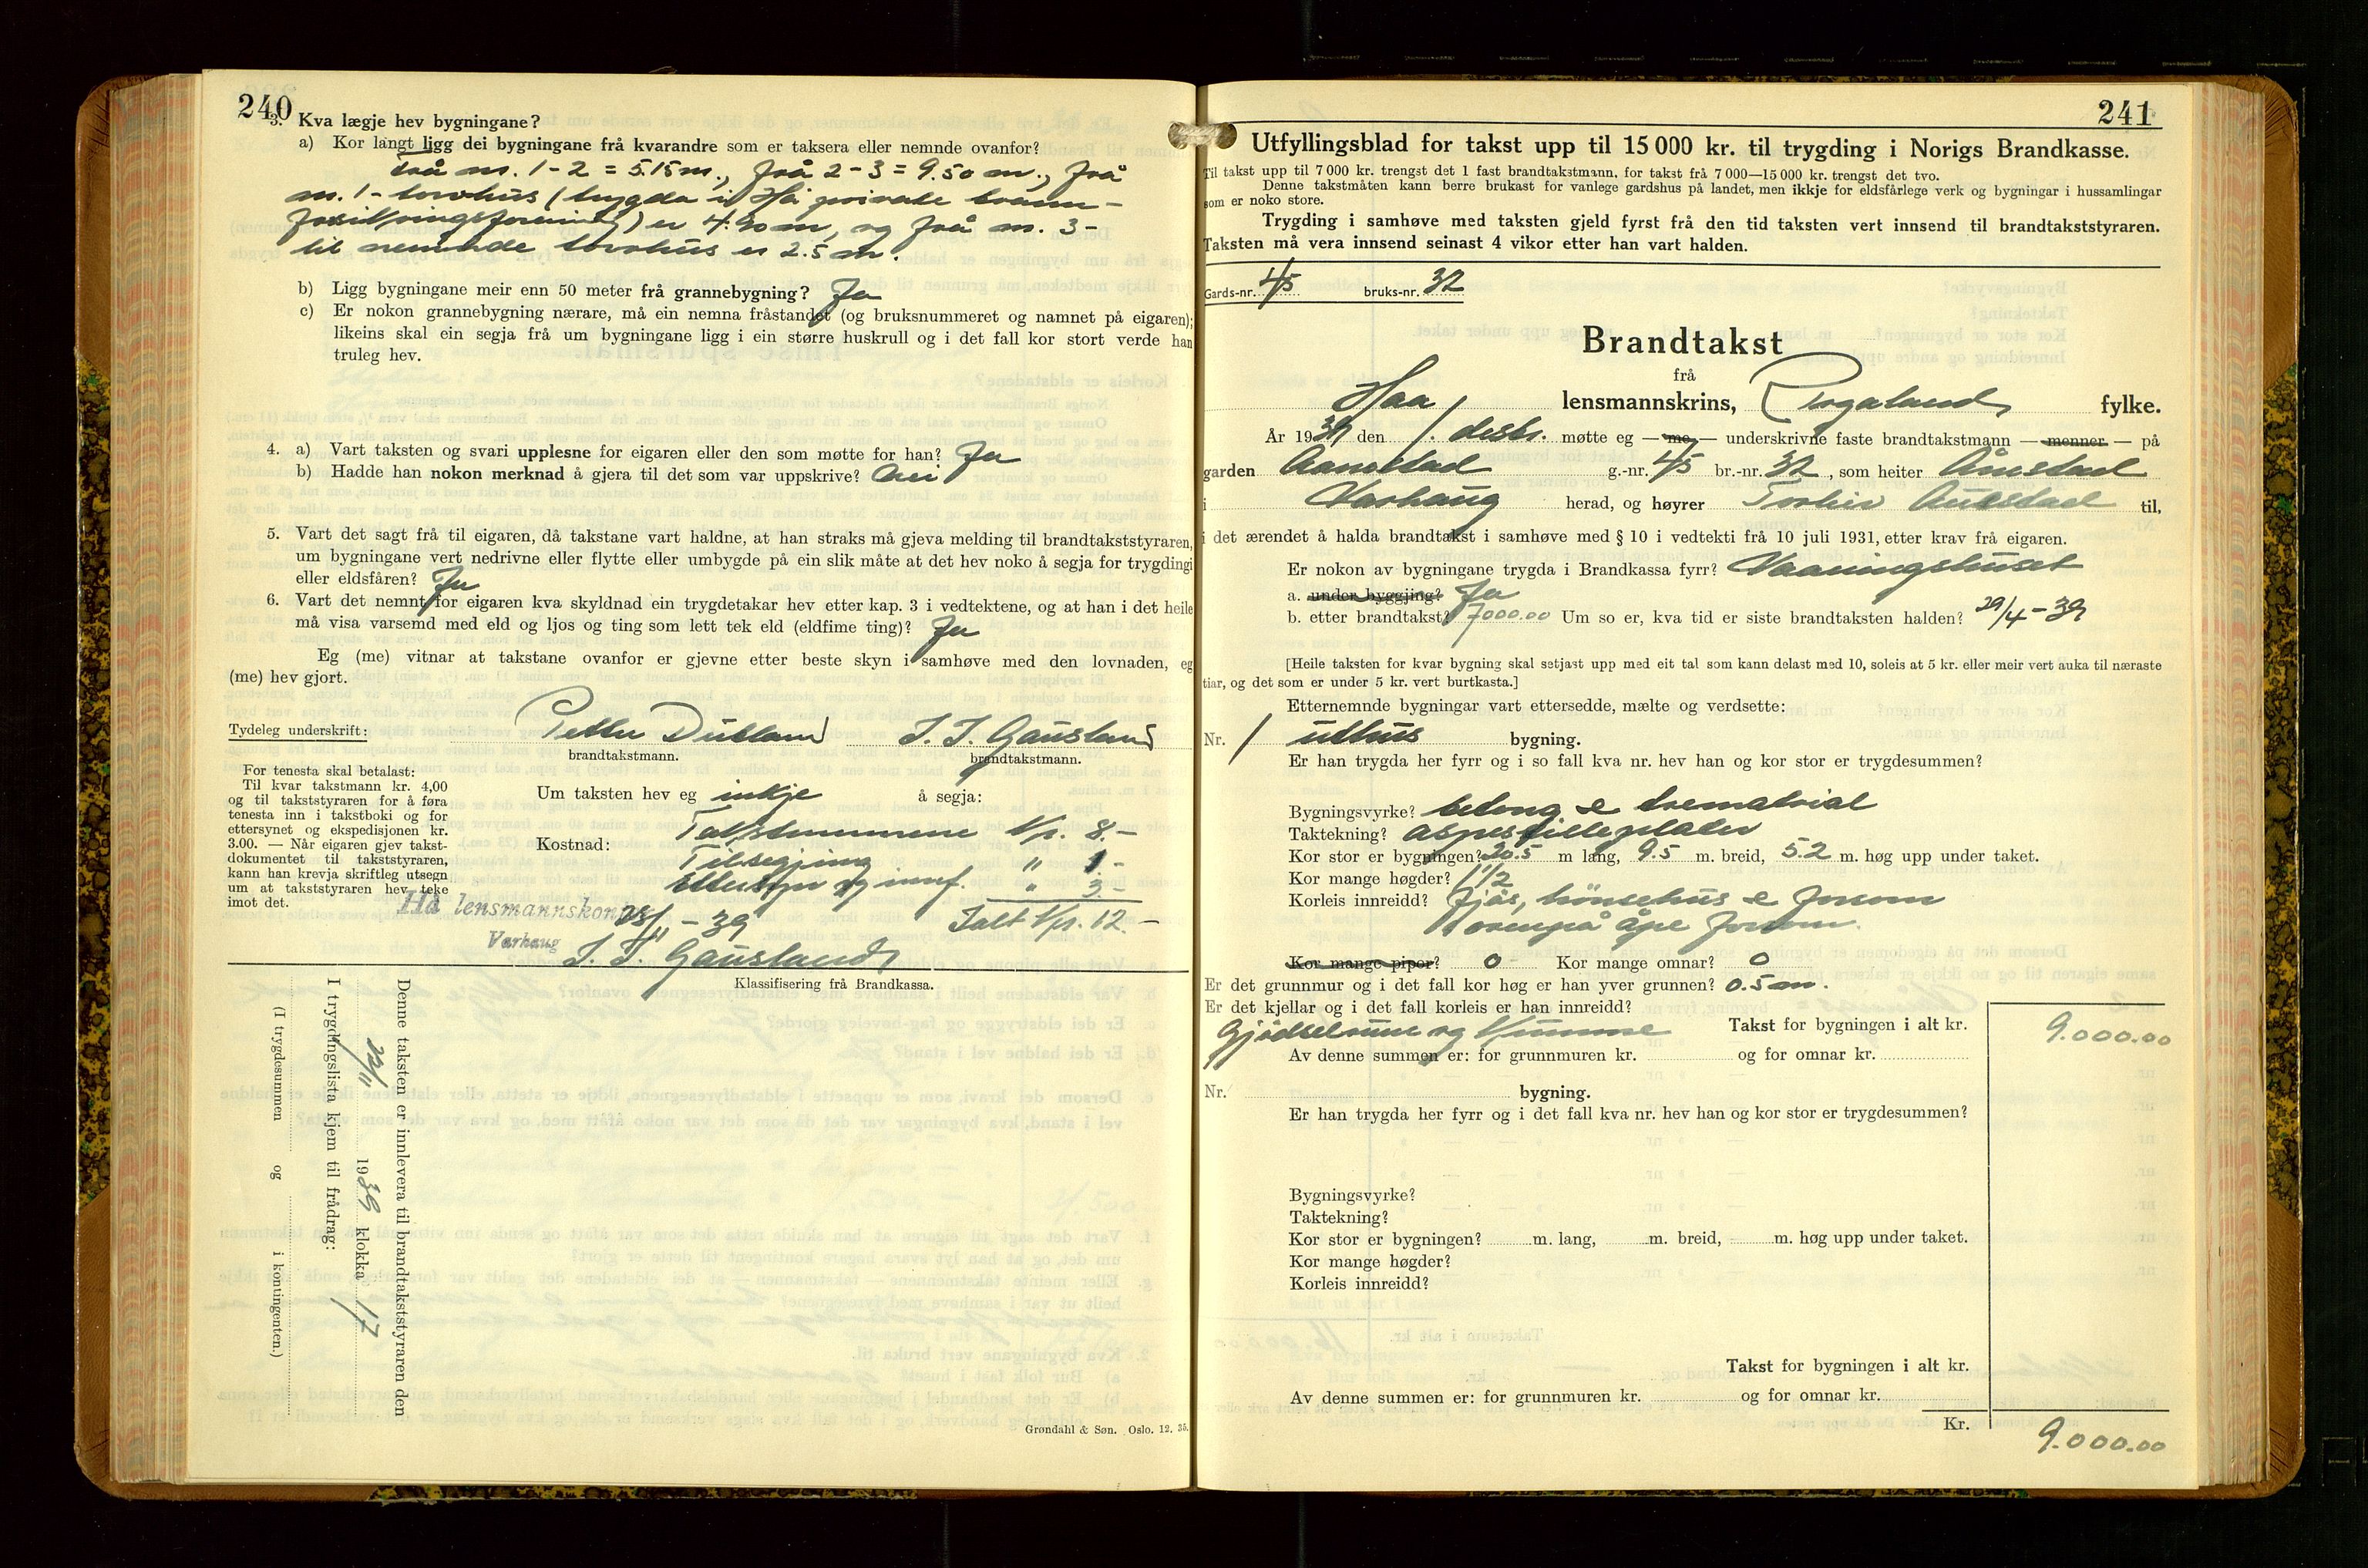 240
3. Kva lægje hev bygningane?
a) Kor langt ligg dei bygningane frå kvarandre som er taksera eller nemnde ovanfor?
Frå nr. 1-2 = 5.15 m., frå 2-3 = 9.50 m., frå
nr. 1 - torvhus (trygda i Hå private brann-
forsikringsforening) er 4.20 m, og frå nr. 3-
til nemnde torvhus er 2.5 m.
b) Ligg bygningane meir enn 50 meter frå grannebygning? Ja
c) Er nokon grannebygning nærare, må ein nemna fråstandet (og bruksnummeret og namnet på eigaren);
likeins skal ein segja frå um bygningane ligg i ein større huskrull og i det fall kor stort verde han
truleg hev.
4. a) Vart taksten og svari upplesne for eigaren eller den som møtte for han? Ja
b) Hadde han nokon merknad å gjera til det som var uppskrive? Nei
5. Vart det sagt frå til eigaren, då takstane vart haldne, at han straks må gjeva melding til brandtakststyraren,
um bygningane vert nedrivne eller flytte eller umbygde på ein slik måte at det hev noko å segja for trygdingi
eller eldsfåren? Ja
6. Vart det nemnt for eigaren kva skyldnad ein trygdetakar hev etter kap. 3 i vedtektene, og at han i det heile
må visa varsemd med eld og ljos og ting som lett tek eld (eldfime ting)? Ja
Eg (me) vitnar at takstane ovanfor er gjevne etter beste skyn i samhøve med den lovnaden, eg
(me) hev gjort.
Tydeleg underskrift: Petter Dubland T. T. Gausland
brandtakstmann. brandtakstmann.
For tenesta skal betalast:
Til kvar takstmann kr. 4,00
og til takststyraren for å føra
tenesta inn i takstboki og for
ettersynet og ekspedisjonen kr.
3.00. — Når eigaren gjev takst-
dokumentet til takststyraren,
kann han krevja skriftleg utsegn
um at takststyraren hev teke
imot det.
Um taksten hev eg inkje å segja:
Kostnad: Takstmennene kr. 8.-
Tilsegjing " 1-
Ettersyn og innf. " 3.-
Ialt kr. 12.-
Hå lensmannskontor
Varhaug
/11 - 39
T. T. Gausland
Klassifisering frå Brandkassa.
Denne taksten er innlevera til brandtakststyraren den
22/11 1939 klokka 17
I trygdingslista kjem til frådrag: /
(I trygdesummen og i kontingenten.)
Grøndahl & Søn. Oslo. 12. 35.
241
Utfyllingsblad for takst upp til 15 000 kr. til trygding i Norigs Brandkasse.
Til takst upp til 7 000 kr. trengst det 1 fast brandtakstmann, for takst frå 7 000—15 000 kr. trengst det tvo.
Denne takstmåten kann berre brukast for vanlege gardshus på landet, men ikkje for eldsfårlege verk og bygningar i hussamlingar
som er noko store.
Trygding i samhøve med taksten gjeld fyrst frå den tid taksten vert innsend til brandtakststyraren.
Taksten må vera innsend seinast 4 vikor etter han vart halden.
Gards-nr. 45 bruks-nr. 32
Brandtakst
frå
Haa lensmannskrins, Rogaland fylke.
År 1939 den 1. desbr. møtte eg — me — underskrivne faste brandtakstmann — menner — på
garden Aanestad g.-nr. 45 br.-nr. 32, som heiter Ånestad
i Varhaug herad, og høyrer Torleiv Aanestad til,
i det ærendet å halda brandtakst i samhøve med § 10 i vedtekti frå 10 juli 1931, etter krav frå eigaren.
Er nokon av bygningane trygda i Brandkassa fyrr? Vaaningshuset
a. under byggjing? Ja
b. etter brandtakst? 7000.00 Um so er, kva tid er siste brandtaksten halden? 29/4-39
[Heile taksten for kvar bygning skal setjast upp med eit tal som kann delast med 10, soleis at 5 kr. eller meir vert auka til næraste
tiar, og det som er under 5 kr. vert burtkasta.]
Etternemnde bygningar vart ettersedde, mælte og verdsette:
Nr. 1 uthus bygning.
Er han trygda her fyrr og i so fall kva nr. hev han og kor stor er trygdesummen?
Bygningsvyrke? betong & trematrial
Taktekning? aspestilleplater
Kor stor er bygningen? 20.5 m lang, 9.5 m. breid, 5.2 m. høg upp under taket.
Kor mange høgder? 1 1/2
Korleis innreidd? fjøs, hönsehus & forrom
ovenpå åpe forrom.
Kor mange pipor? 0 Kor mange omnar? 0
Er det grunnmur og i det fall kor høg er han yver grunnen? 0.5 m.
Er det kjellar og i det fall korleis er han innreidd?
Gjødselrum og kumme Takst for bygningen i alt kr. 9.000.00
Av denne summen er: for grunnmuren kr. og for omnar kr.
Nr. bygning.
Er han trygda her fyrr og i det fall kva nr. hev han og kor stor er trygdesummen?
Bygningsvyrke?
Taktekning?
Kor stor er bygningen? m. lang, m. breid, m. høg upp under taket.
Kor mange høgder?
Korleis innreidd?
Takst for bygningen i alt kr.
Av denne summen er: for grunnmuren kr. og for omnar kr.
Kr. 9.000.00